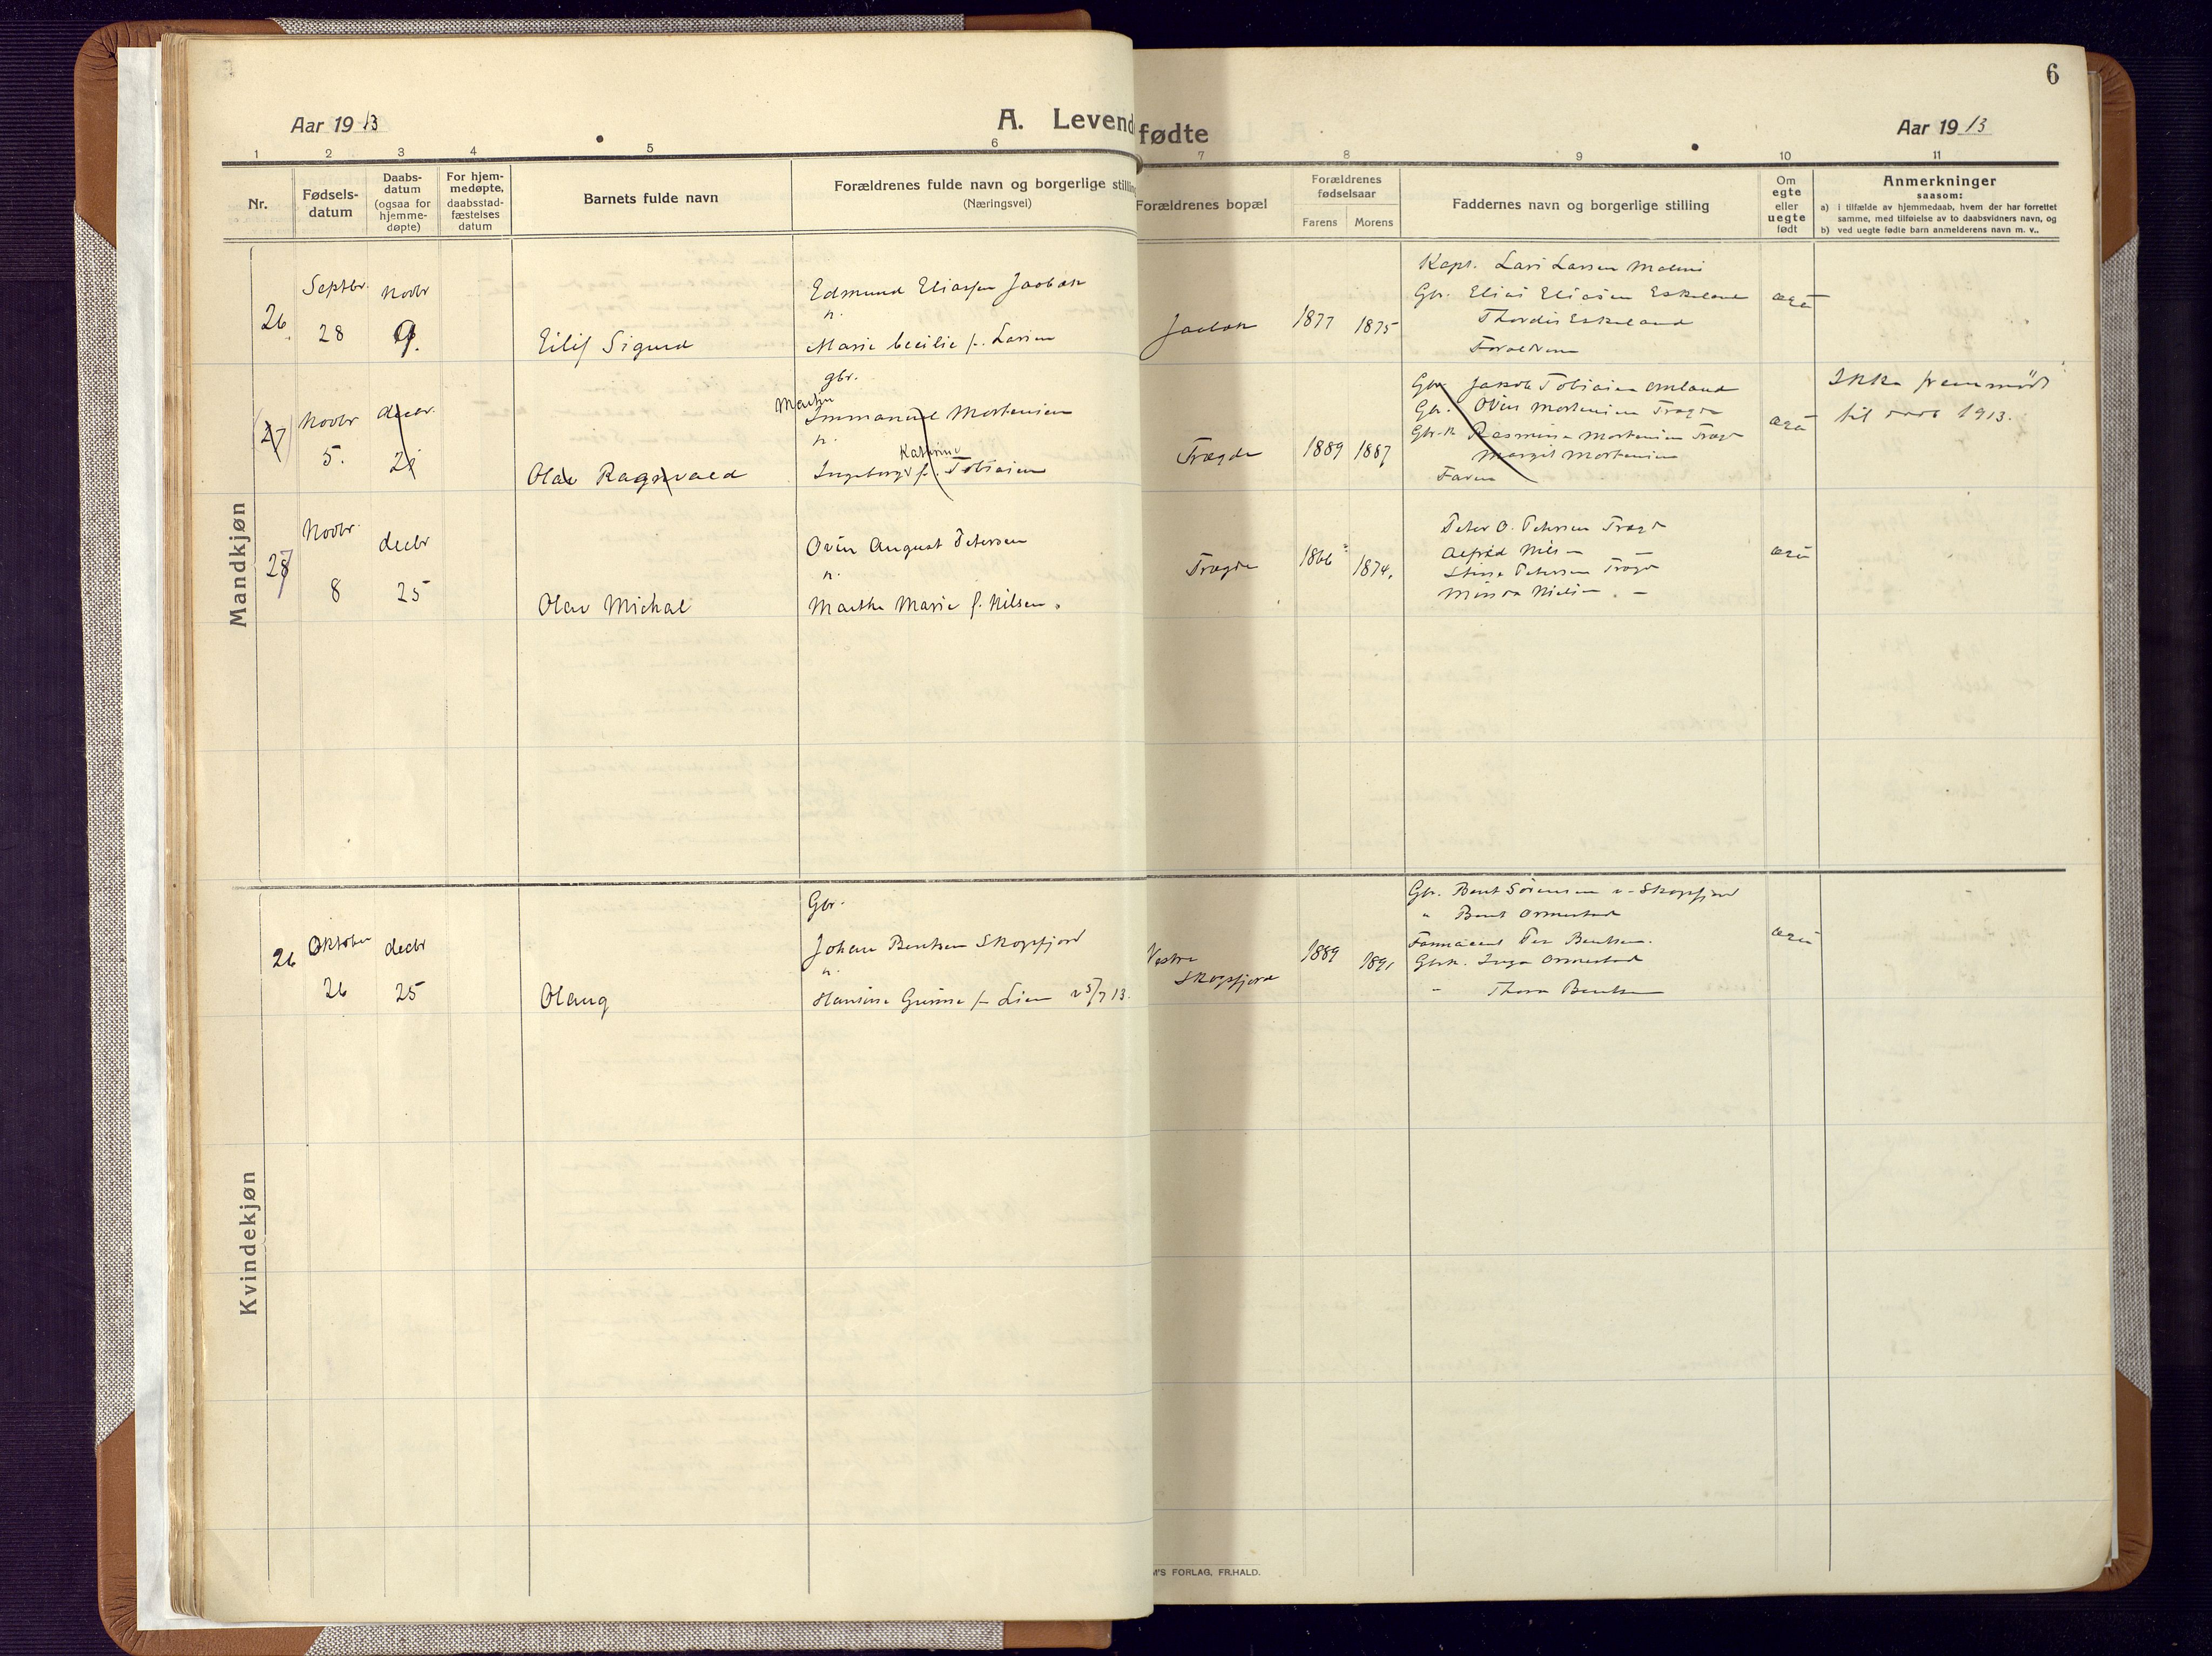 6
Aar 1913
A. Levende fødte
Aar 1913
1 2 3 4 5 6 7 8 9 10 11
Nr.
Fødsels-
datum
Daabs-
datum
(ogsaa for
hjemme-
døpte)
For hjem-
medøpte,
daabsstad-
fæstelses
datum
Barnets fulde navn
Forældrenes fulde navn og borgerlige stilling
(Næringsvei)
Forældrenes bopæl
Forældrenes
fødselsaar
Farens Morens
Faddernes navn og borgerlige stilling
Om
egte
eller
uegte
født
Anmerkninger
saasom:
a) i tilfælde av hjemmedaab, hvem der har forrettet
samme, med tilføielse av to daabsvidners navn, og
b) ved uegte fødte barn anmelderens navn m. v..
Mandkjøn
26
Septbr.
28
Novbr
9.
Eilif Sigurd
Edmund Eliassen
h.
Marie Cecilie f. Larsen
1877 1875
Kapt. Lars Larsen
Gbr. Elias Eliasen Eskeland
Thordis Eskeland
Forældrene
27
Novbr
5.
decbr.
21
Olav Ragnvald
gbr.
Martin
Immanuel Mortensen
h.
Katrine
Ingeborg f. Tobiasen
Trægde
1889 1887
Gbr. Jakob Tobiasen Omland
Gbr. Ovin Mortensen Trægde
Gbr.k Rasmine Mortensen Trægd
Margit Mortensen
Faren
Ikke fremmødt
til daab 1913.
28
Novbr.
8
decbr
25
Olav Michal
Ovin August Petersen
h.
Marthe Marie f. Nilsen.
Trægde
1866 1874.
Peter O. Petersen Trægd
Alfred Nils –
Stine Petersen Trægd
Nielsen. –
Kvindekjøn
26
Oktober
26
decbr
25
Olaug
Gbr.
Johan Bentsen Skogsfjord
h.
Hansine Gurine f. Lien 25/7 13.
Vestre
Skogsfjord
1889 1891
Gbr. Bent Sørensen v. Skogsfjord
" Bent Ormestad
Per Bentsen.
Gbrk. Inga Ormestad
" Thora Bentsen
M'S FORLAG, FR.HALD.